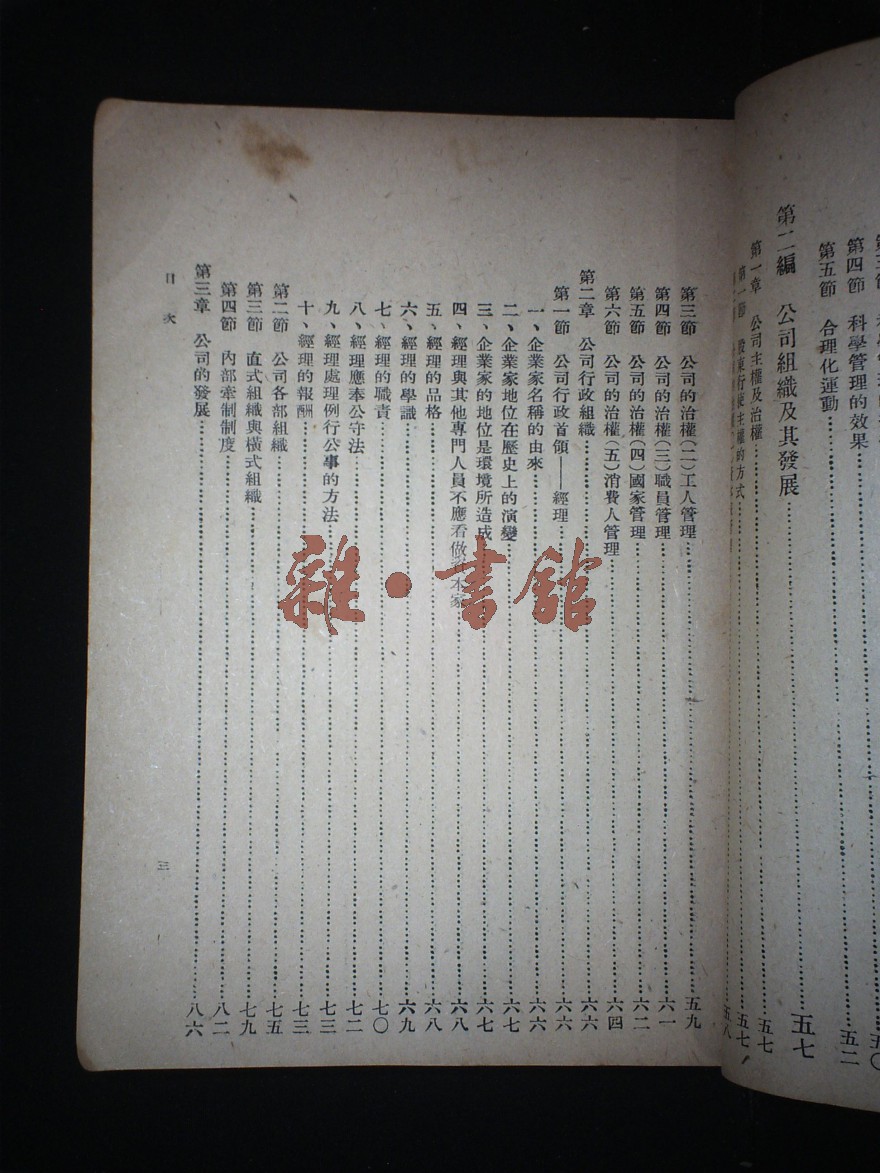 第四節　科學管理的效果……五二
第五節　合理化運動
第二編　公司組織及其發展……五七
第一章　公司主權及治權……五七
第一節　股東行使主權的方式……五七
五八
第三節　公司的治權(二)工人管理……五九
第四節　公司的治權(三)職員管理……六一
第五節　公司的治權(四)國家管理……六二
第六節　公司的治權(五)消費人管理……六四
第二章　公司行政組織……六六
第一節　公司行政首領——經理……六六
一、企業家名稱的由來……六六
二、企業家地位在歷史上的演變……六七
三、企業家的地位是環境所造成……六七
四、經理與其他專門人員不應看做資本家……六八
五、經理的品格……六八
六、經理的學識……六九
七、經理的職責……七〇
八、經理應奉公守法……七二
九、經理處理例行公事的方法……七三
十、經理的報酬……七三
第二節　公司各部組織……七五
第三節　直式組織與橫式組織……七九
第四節　內部牽制制度……八二
第三章　公司的發展……八六
目次
三
雜·書館